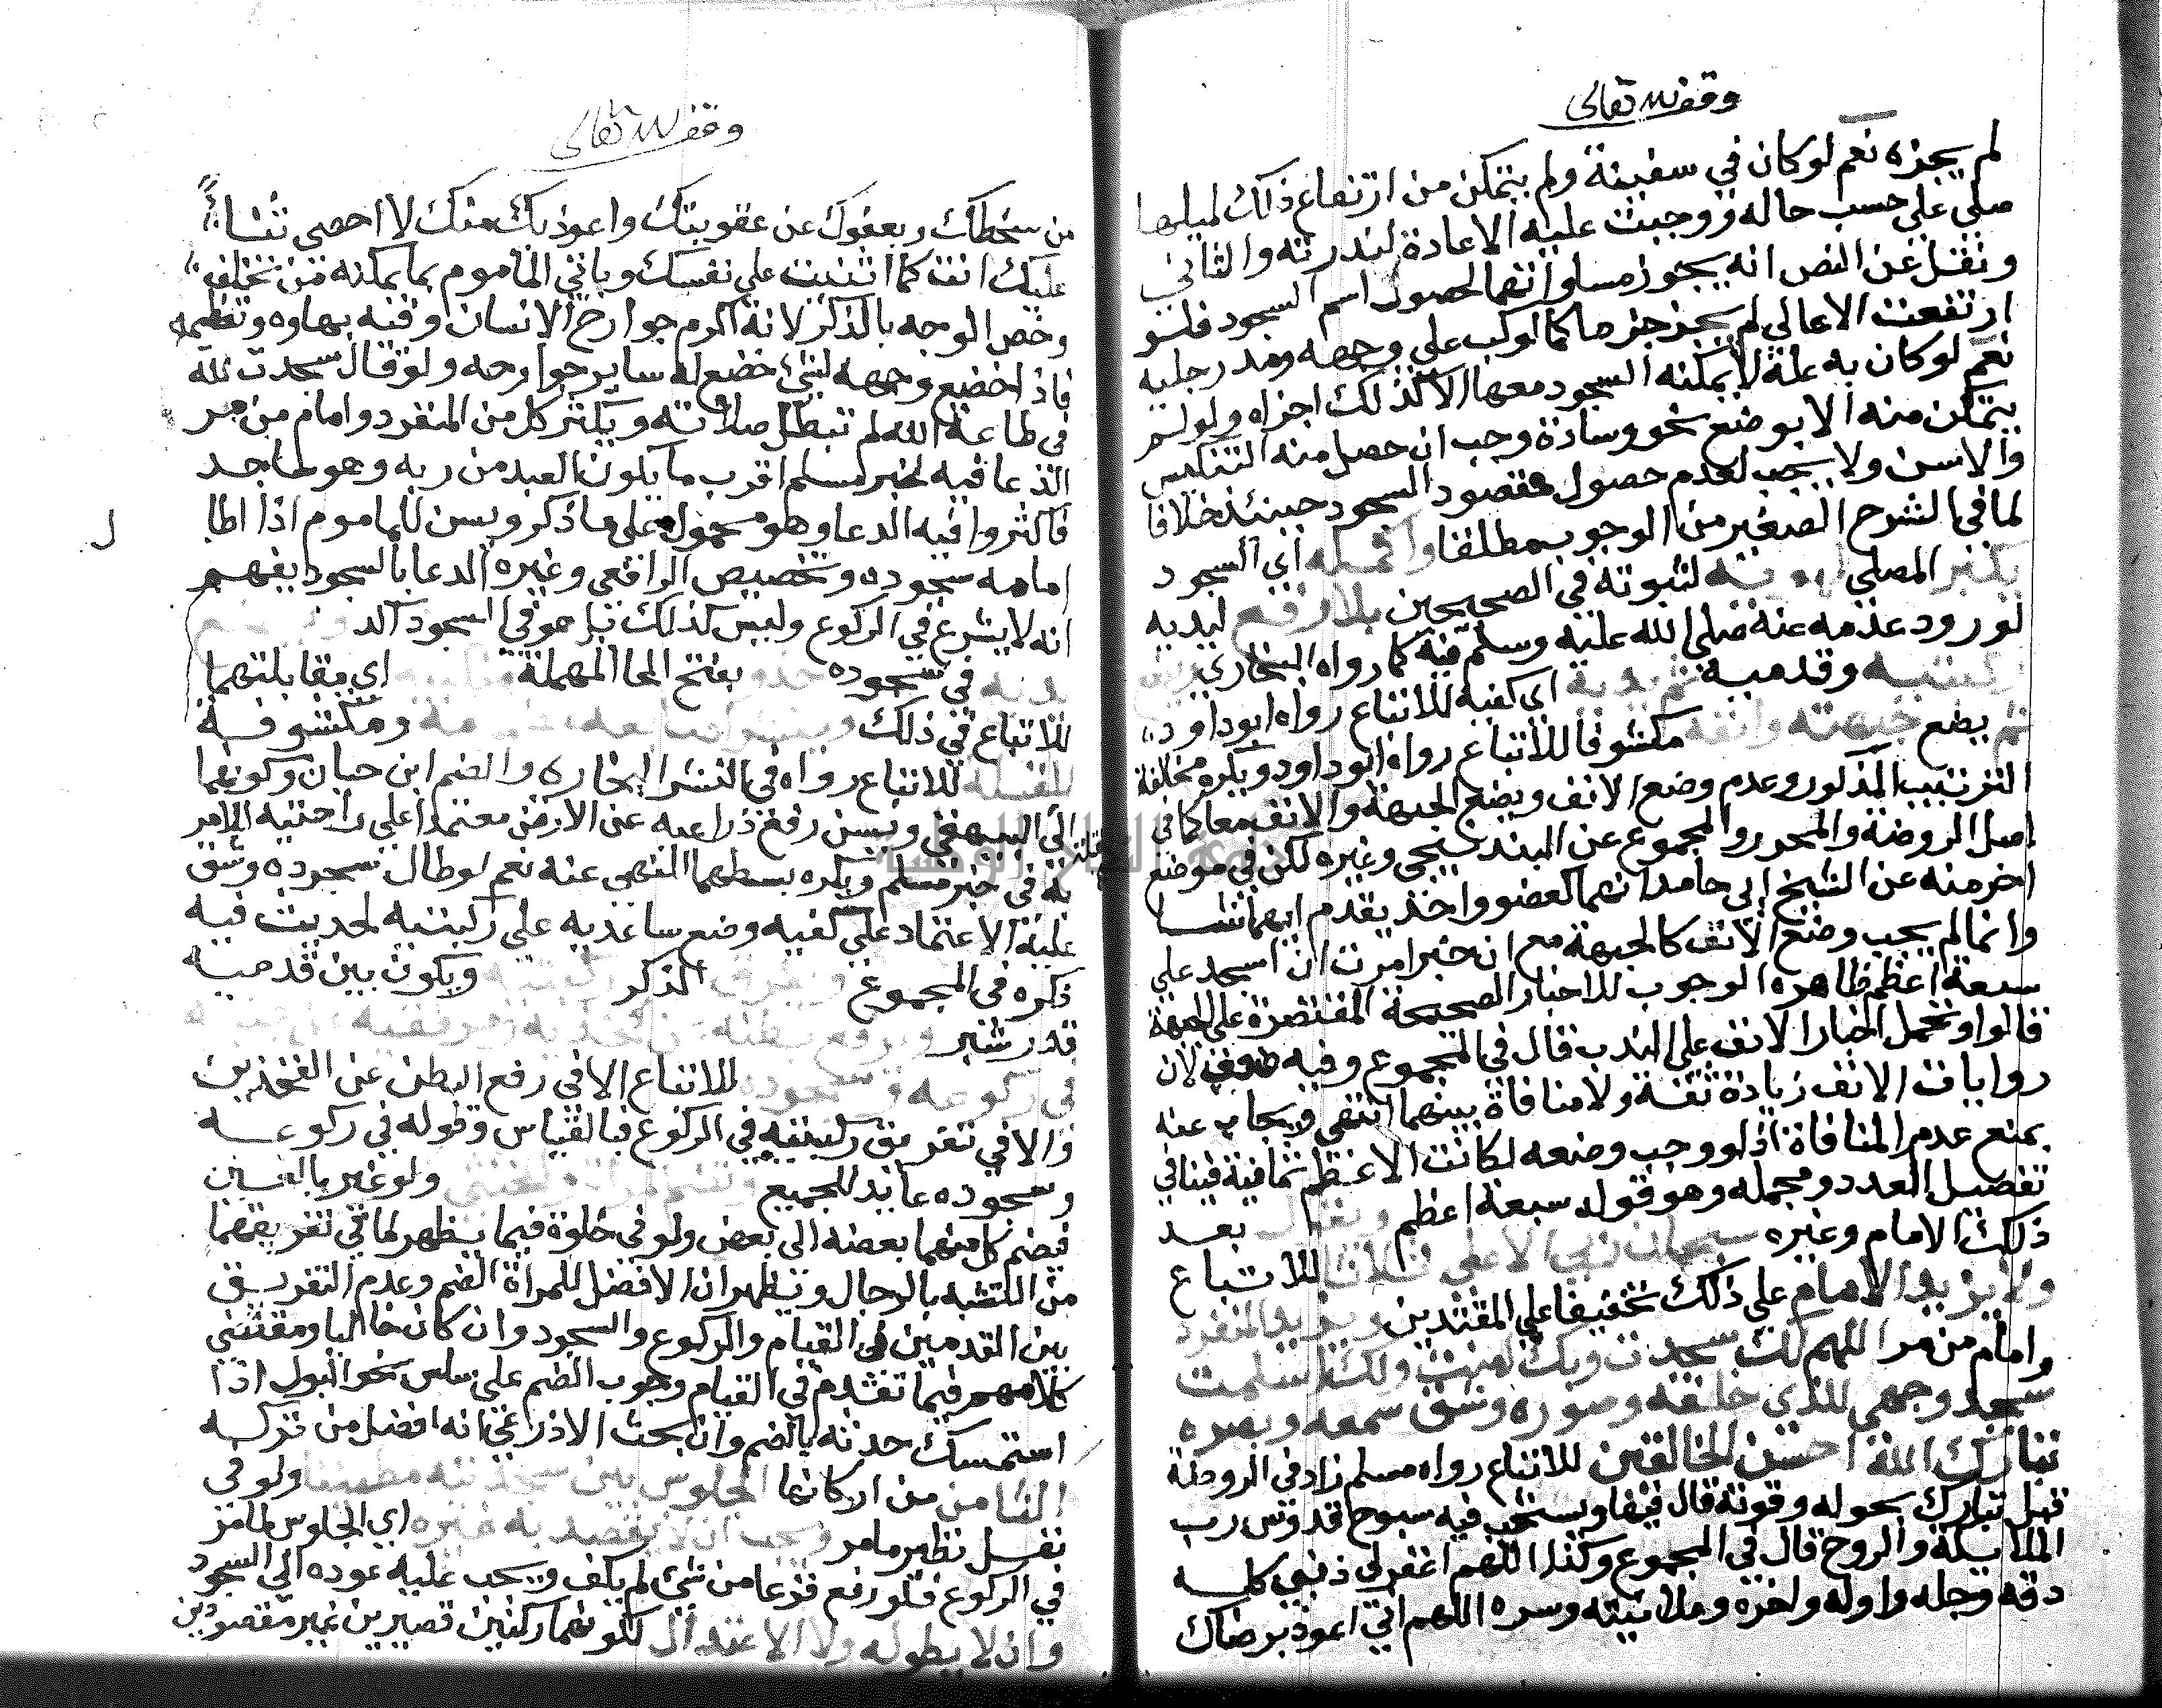 وقف لله تعالى
لم يجزه نعم لو كان في سفينة ولم يتمكن من ارتفاع ذلك لميلها
صلي علي حسب حاله ووجبت عليه الاعادة لندرته والثاني
ونقل عن النص انه يجوز مساواتهما لحصول اسم السجود فلو
ارتفعت الاعالي لم يجز جزما كما لوكب علي وجهه ومد رجليه
نعم لو كان به علة لا يمكنه السجود معها الا كذلك اجزاه ولو لم
يتمكن منه الا بوضع نحو وسادة وجب ان حصل منه التنكيس
والاسن ولا يجب لعدم حصول مقصود السجود حينئذ خلافا
لما في الشرح الصغير من الوجوب مطلقا واكمله اي السجود
يكبر المصلي لهويه لثبوته في الصحيحين بلا رفع ليديه
لورود عدمه عنه صلى الله عليه وسلم فيه كما رواه البخاري
ركبتيه وقدميه ثم يديه اي كفيه للاتباع رواه ابو داود
ثم يضع جبهته وانفه مكشوفا للاتباع رواه ابو داود ويكره مخالفة
الترتيب المذكور وعدم وضع الانف ويضع الجبهة والانف معا كما في
اصل الروضة والمحرر والمجموع عن البندنيجي وغيره لكن في موضع
اخر منه عن الشيخ ابي حامد انهما كعضو واحد يقدم ايهما شا
وانما لم يجب وضع الانف كالجبهة مع ان خبر امرت ان اسجد علي
سبعة اعظم ظاهره الوجوب للاخبار الصحيحة المقتصرة علي الجبهة
قالوا وتحمل اخبار الانف علي الندب قال في المجموع وفيه ضعف لان
روايات الانف زيادة ثقة ولا منافاة بينهما انتهي ويجاب عنه
بمنع عدم المنافاة اذ لو وجب وضعه لكانت الاعظم ثمانية فينافي
تفصيل العدد ومجمله وهو قوله سبعة اعظم ويقول بعد
ذلك الامام وغيره سبحان ربي الاعلي ثلاثا للاتباع
ولا يزيد الامام علي ذلك تخفيفا علي المقتدين ويزيد المنفرد
وامام من مر اللهم لك سجدت وبك امنت ولك اسلمت
سجد وجهي للذي خلقه وصوره وشق سمعه وبصره
تبارك الله احسن الخالقين للاتباع رواه مسلم زاد في الروضة
قبل تبارك بحوله وقوته قال فيها ويستحب فيه سبوح قدوس رب
الملائكة والروح قال في المجموع وكذا اللهم اغفر لي ذنبي كله
دقه وجله واوله واخره وعلانيته وسره اللهم اني اعوذ برضاك
وقف لله تعالى
من سخطك وبعفوك عن عقوبتك واعوذ بك منك لا احصي ثناء
عليك انت كما اثنيت علي نفسك وياتي الماموم بما يمكنه من تخلف
وخص الوجه بالذكر لانه اكرم جوارح الانسان وفيه بهاوه وتعظيمه
فاذا خضع وجهه لشئ خضع له ساير جوارحه ولو قال سجدت لله
في طاعة الله لم تبطل صلاته ويكثر كل من المنفرد وامام من مر
الدعا فيه لخبر مسلم اقرب ما يكون العبد من ربه وهو ساجد
فاكثروا فيه الدعا وهو محمول علي ما ذكر ويسن للماموم اذا اطا
ل
امامه سجوده وتخصيص الرافعي وغيره الدعا بالسجود يفهم
انه لا يشرع في الركوع وليس كذلك بل هو في السجود اكد
يديه في سجوده حذو بفتح الحا المهملة اي مقابلتهما
للاتباع في ذلك ومكشوفة
للقبلة للاتباع رواه في النشر البخاري والضم ابن حبان وكونهما
الي البيهقي ويسن رفع ذراعيه عن الارض معتمدا علي راحتيه للامر
به في خبر مسلم ويكره بسطهما للنهي عنه نعم لو طال سجوده وشق
عليه الاعتماد علي كفيه وضع ساعديه علي ركبتيه لحديث فيه
ذكره في المجموع ويفرق ركبتيه الذكر ويكون بين قدميه
قدر شبر ويرفع بطنه عن فخذيه ومرفقيه
في ركوعه وسجوده للاتباع الا في رفع البطن عن الفخذين
والا في تفريق ركبتيه في الركوع فبالقياس وقوله في ركوعه
وسجوده عايد للجميع وتضم المراة والخنثي ولو غير بالغين
فيضم كل منهما بعضه الي بعض ولو في خلوة فيما يظهر لما في تفريقهما
من التشبه بالرجال ويظهر ان الافضل للمراة الضم وعدم التفريق
بين القدمين في القيام والركوع والسجود وان كان خاليا ومقتضي
كلامهم فيما تقدم في القيام وجوب الضم علي سلس نحو البول اذا
استمسك حدثه بالضم وان بحث الاذرعي انه افضل من تركه
الثامن من اركانها الجلوس بين سجدتيه مطمئنا ولو في
نفل نظير ما مر ويجب ان لا يقصد به غيره اي الجلوس لما مر
في الركوع فلو رفع فزعا من شئ لم يكف ويجب عليه عوده الي السجود
وان لا يطوله ولا الاعتدال لكونهما ركنين قصيرين غير مقصودين